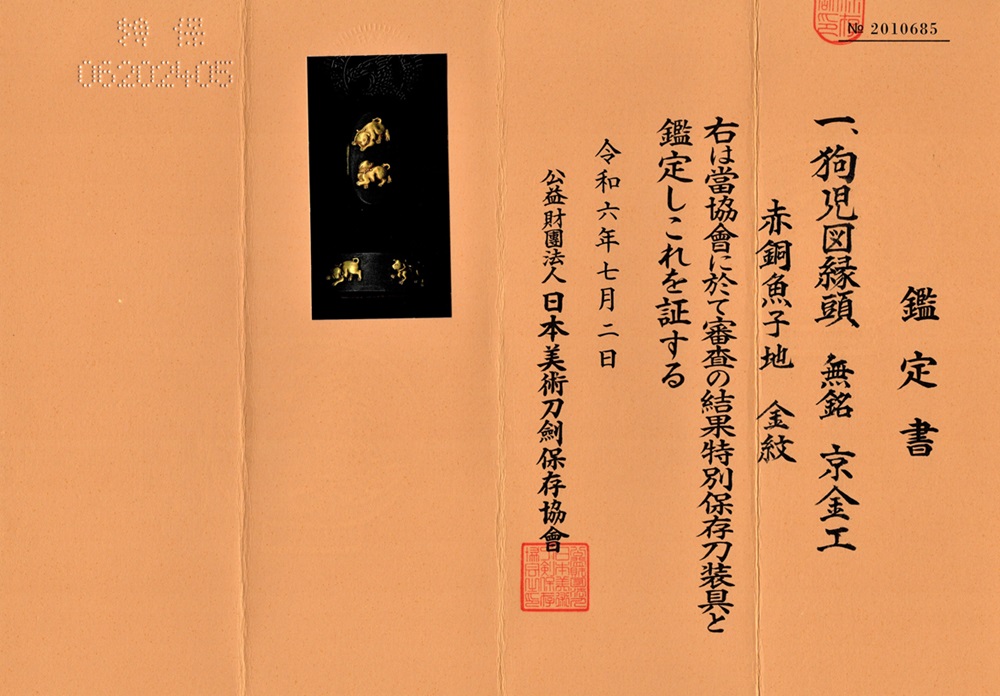 № 2010685
鑑定書
一、狗児図縁頭 無銘 京金工
赤銅魚子地 金紋
右は當協會に於て審査の結果特別保存刀装具と
鑑定しこれを証する
令和六年七月二日
公益財團法人 日本美術刀劍保存協會
特保
06202405